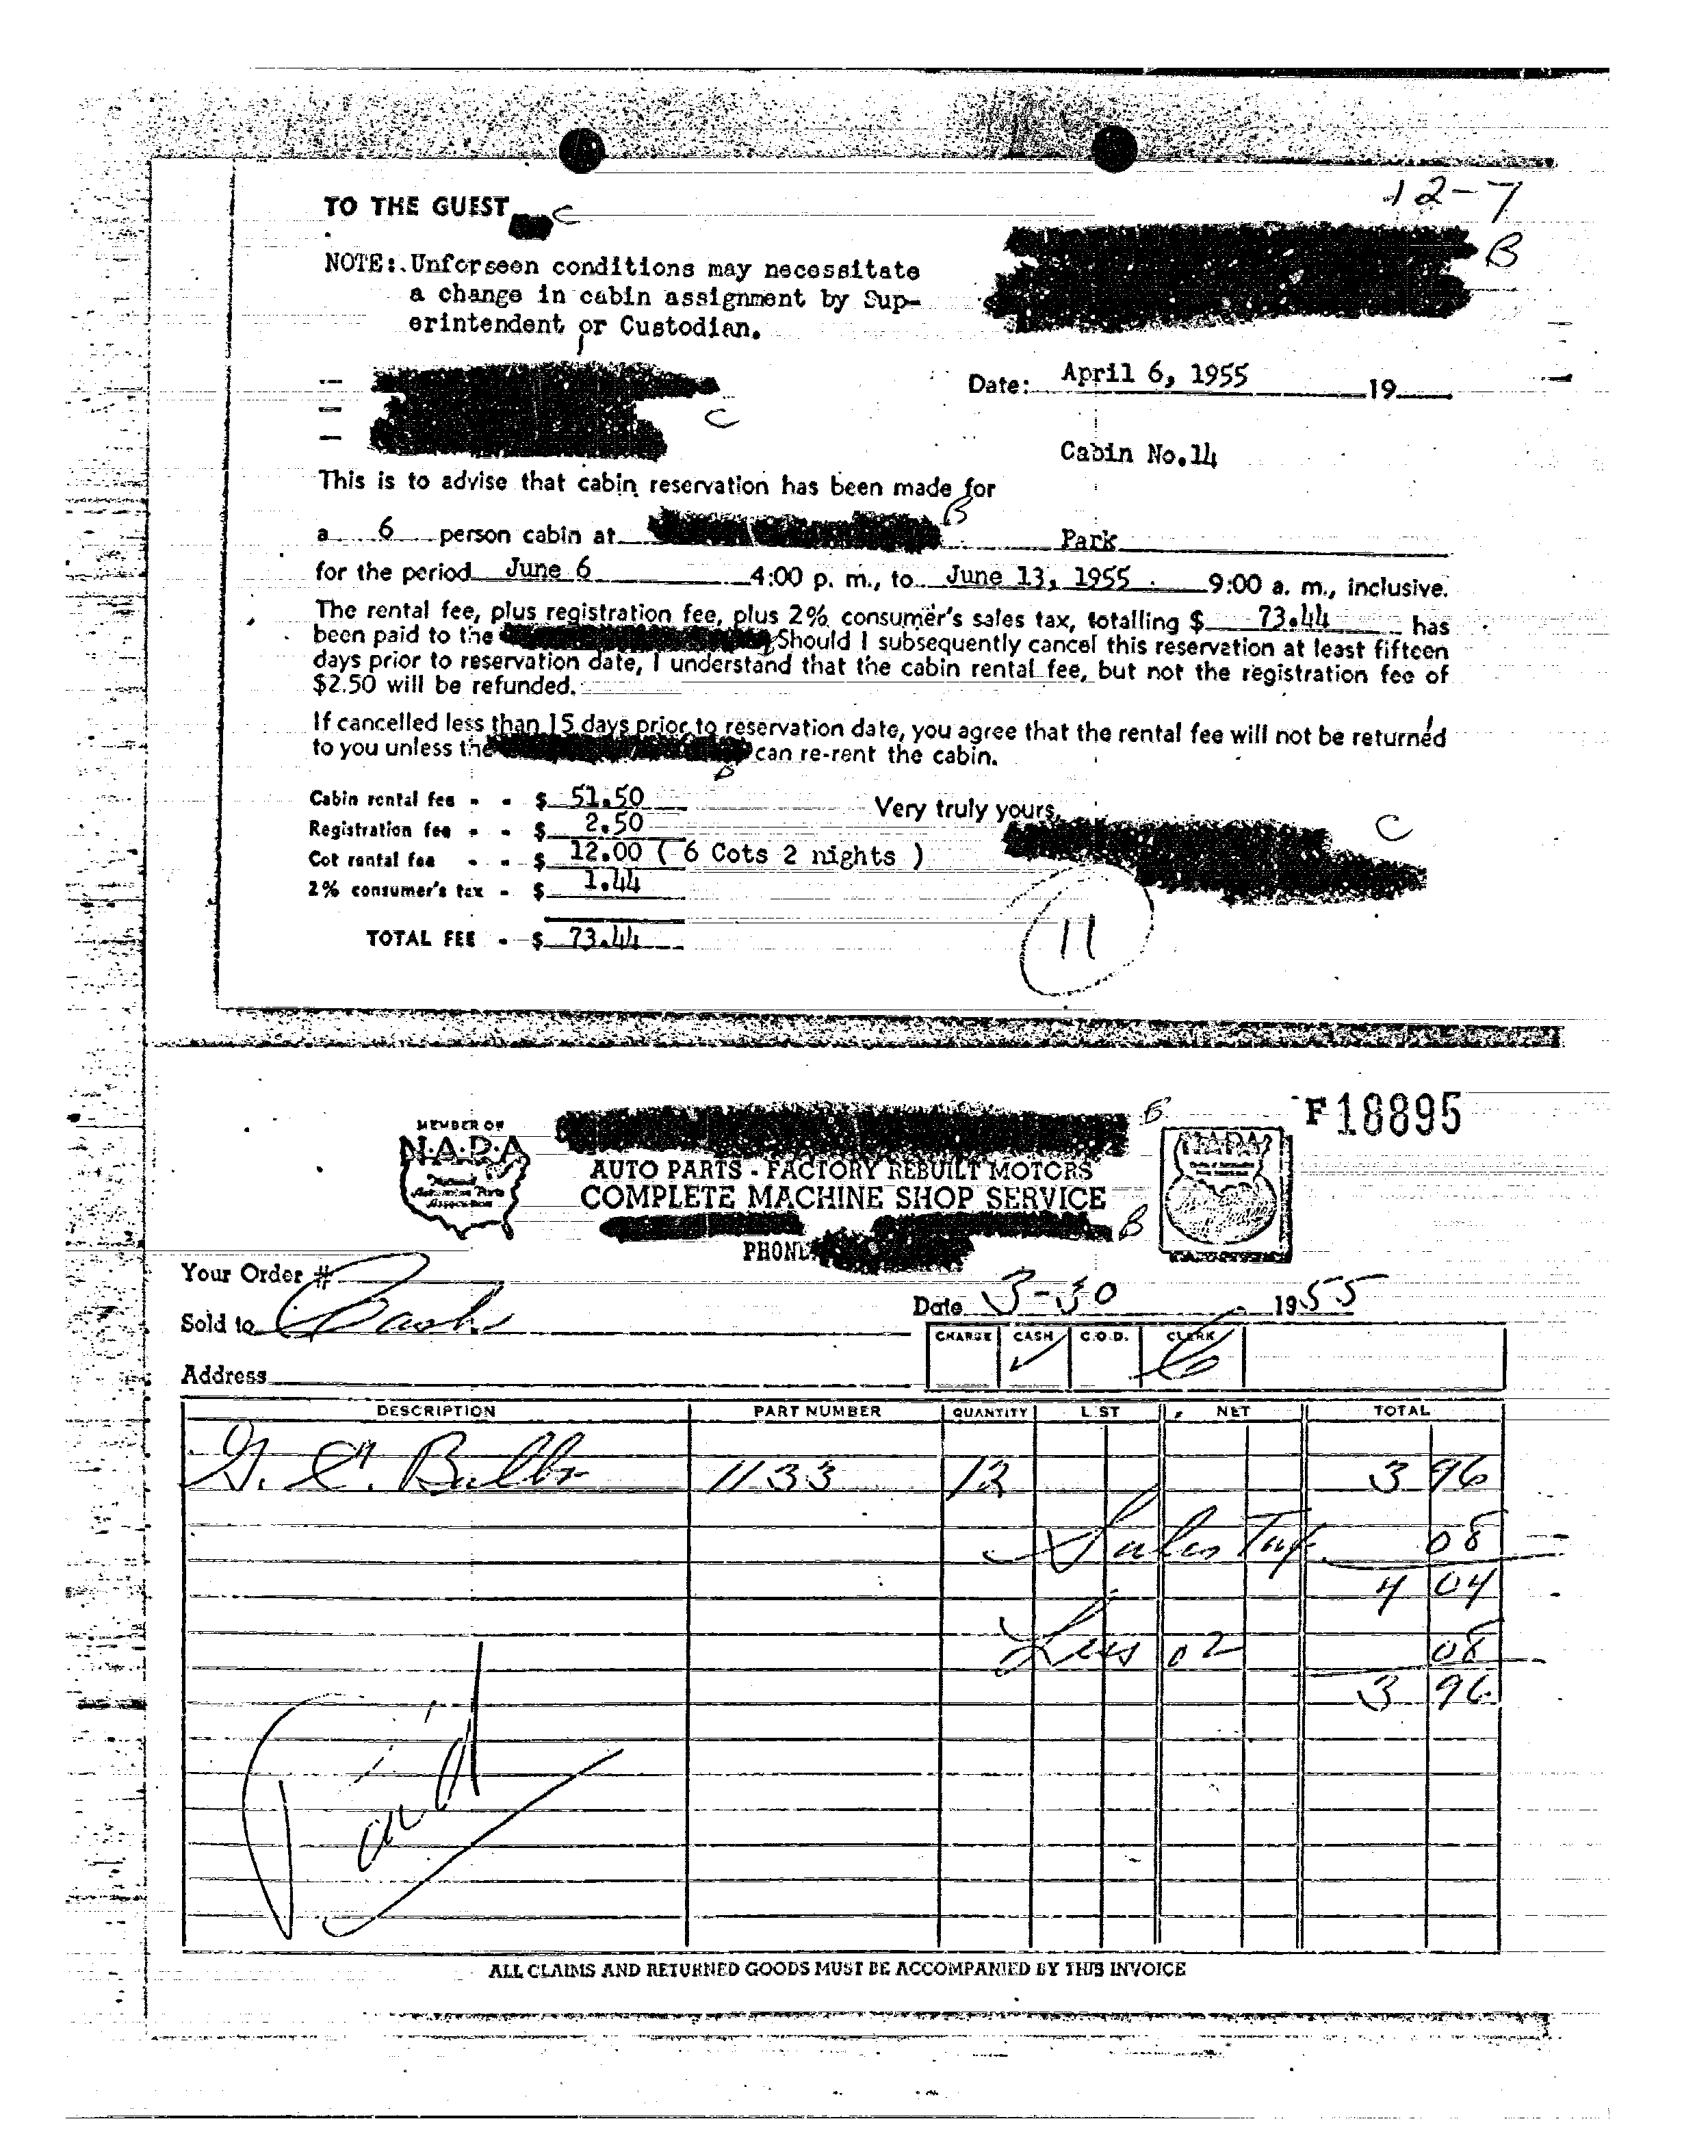 12-7
TO THE GUEST
C
B
NOTE: Unforseen conditions may necessitate
a change in cabin assignment by Sup-
erintendent or Custodian.
Date: April 6, 1955 19
C
Cabin No.14
This is to advise that cabin reservation has been made for
B
a 6 person cabin at Park
for the period June 6 4:00 p. m., to June 13, 1955. 9:00 a. m., inclusive.
The rental fee, plus registration fee, plus 2% consumer's sales tax, totalling $ 73.44 has
been paid to the Should I subsequently cancel this reservation at least fifteen
days prior to reservation date, I understand that the cabin rental fee, but not the registration fee of
$2.50 will be refunded.
If cancelled less than 15 days prior to reservation date, you agree that the rental fee will not be returned
to you unless the can re-rent the cabin.
Cabin rental fee - - $ 51.50
Very truly yours,
Registration fee - - $ 2.50
C
Cot rental fee - - $ 12.00 ( 6 Cots 2 nights )
2% consumer's tax - $ 1.44
11
TOTAL FEE - $ 73.44
F18895
MEMBER OF
N.A.P.A
National
Automotive Parts
Association
B
AUTO PARTS - FACTORY REBUILT MOTORS
COMPLETE MACHINE SHOP SERVICE
B
PHONE
N.A.P.A.
Your Order #
Date 3-30 1955
Sold to Cash
CHARGE CASH C.O.D. CLERK
Address
DESCRIPTION PART NUMBER QUANTITY LIST NET TOTAL
G. E. Bulbs 1133 12 3 96
Sales Tax 08
4 04
Less 02 08
3 96
Paid
ALL CLAIMS AND RETURNED GOODS MUST BE ACCOMPANIED BY THIS INVOICE